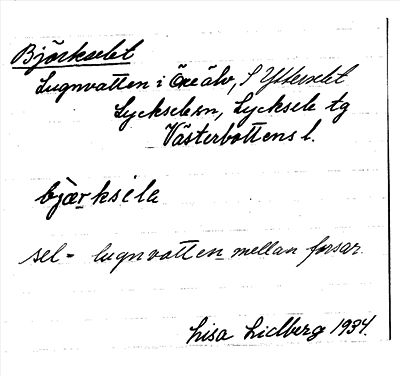 Björkselet
Lugnvatten i Öreälv, S Ytterselet
Lycksele sn, Lycksele tg
Västerbottens l.
bjærksela
sel = lugnvatten mellan forsar.
Lisa Lidberg 1934.